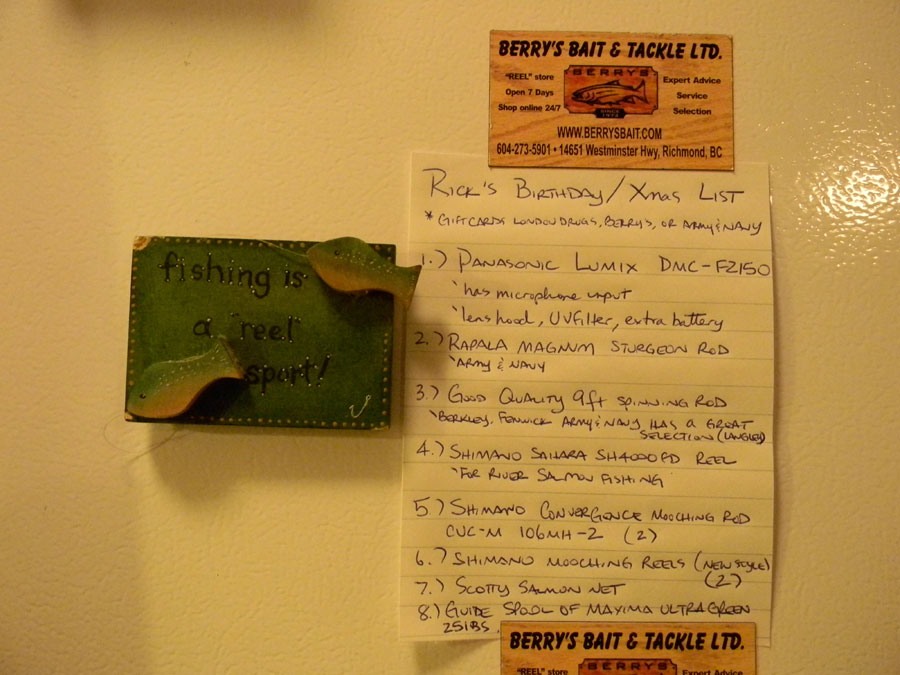 BERRY'S BAIT & TACKLE LTD.
"REEL" store
Open 7 Days
Shop online 24/7
BERRYS
SINCE
Expert Advice
Service
Selection
WWW.BERRYSBAIT.COM
604-273-5901 • 14651 Westminster Hwy, Richmond, BC
fishing is
a "reel"
sport!
RICK'S BIRTHDAY/XMAS LIST
* GIFTCARDS LONDON DRUGS, BERRY'S, OR ARMY & NAVY
1.) PANASONIC LUMIX DMC-FZ150
'has microphone input
'lens hood, UV Filter, extra battery
2.) RAPALA MAGNUM STURGEON ROD
'ARMY & NAVY
3.) GOOD QUALITY 9ft SPINNING ROD
'BERKLEY, FENWICK ARMY & NAVY HAS A GREAT
SELECTION (LANGLEY)
4.) SHIMANO SAHARA SH4000FD REEL
'FOR RIVER SALMON FISHING
5.) SHIMANO CONVERGENCE MOOCHING ROD
CVC-M 106MH-2 (2)
6.) SHIMANO MOOCHING REELS (NEW STYLE)
(2)
7.) SCOTTY SALMON NET
8.) GUIDE SPOOL OF MAXIMA ULTRAGREEN
25lBS.
BERRY'S BAIT & TACKLE LTD.
"REEL" store
BERRYS
Expert Advice